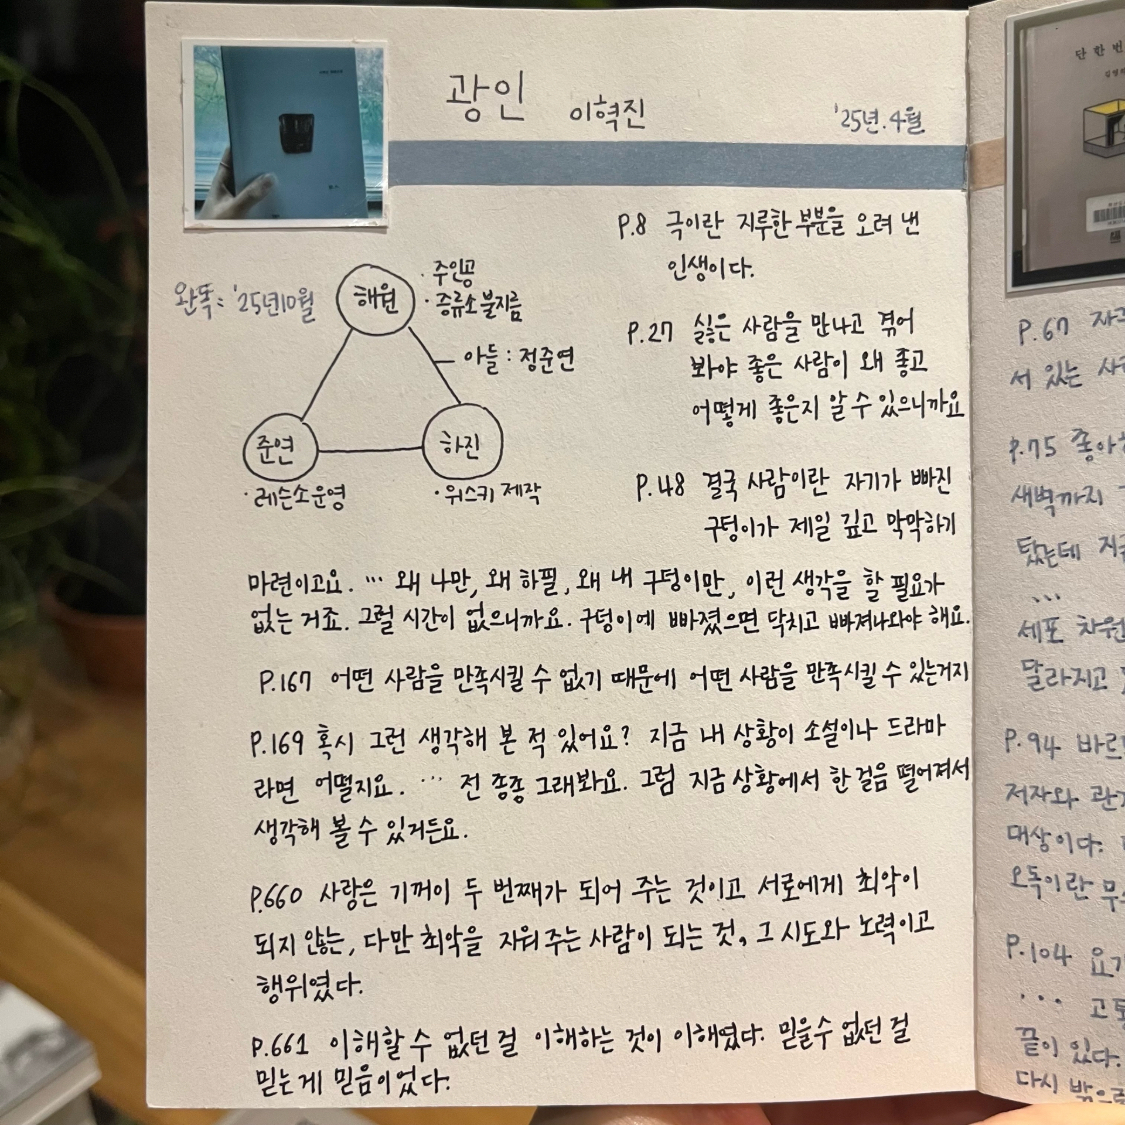 광인 이혁진 '25년.4월
완독: '25년10월
해원
· 주인공
· 증류소 불지름
아들 : 정준연
준연
· 레슨소 운영
하진
· 위스키 제작
P.8 극이란 지루한 부분을 오려 낸
인생이다.
P.27 싫은 사람을 만나고 겪어
봐야 좋은 사람이 왜 좋고
어떻게 좋은지 알 수 있으니까요
P.48 결국 사람이란 자기가 빠진
구덩이가 제일 깊고 막막하기
마련이고요. … 왜 나만, 왜 하필, 왜 내 구덩이만, 이런 생각을 할 필요가
없는 거죠. 그럴 시간이 없으니까요. 구덩이에 빠졌으면 닥치고 빠져나와야 해요.
P.167 어떤 사람을 만족시킬 수 없기 때문에 어떤 사람을 만족시킬 수 있는거지
P.169 혹시 그런 생각해 본 적 있어요? 지금 내 상황이 소설이나 드라마
라면 어떨지요. … 전 종종 그래봐요. 그럼 지금 상황에서 한 걸음 떨어져서
생각해 볼 수 있거든요.
P.660 사랑은 기꺼이 두 번째가 되어 주는 것이고 서로에게 최악이
되지 않는, 다만 최악을 지워 주는 사람이 되는 것, 그 시도와 노력이고
행위였다.
P.661 이해할 수 없던 걸 이해하는 것이 이해였다. 믿을수 없던 걸
믿는 게 믿음이었다.
단 한 번
P.67
서 있는
P.75 좋아
새벽까지
탔는데
…
세포 차원
달라지고
P.94 바르
저자와
대상이다.
오독이란
P.104 요가
…
끝이 있다.
다시 밖으로